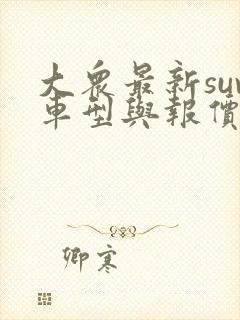 大眾最新suv
車型與報價
卿寒